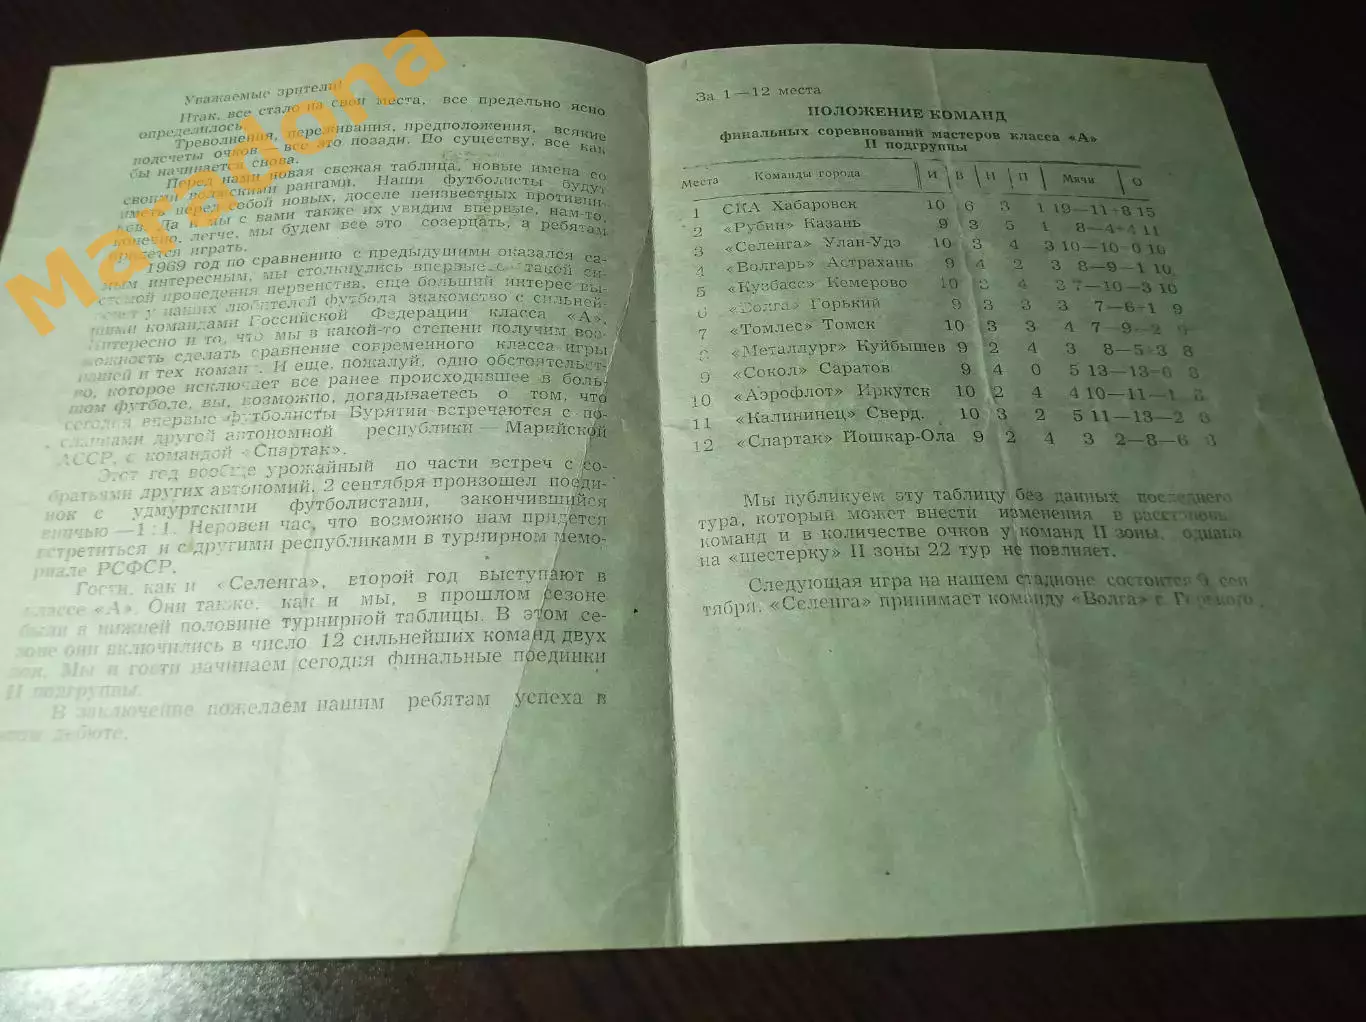 Maradona
Уважаемые зрители!
Итак, все стало на свои места, все предельно ясно
определилось.
Треволнения, переживания, предположения, всякие
подсчеты очков — все это позади. По существу, все как
бы начинается снова.
Перед нами новая свежая таблица, новые имена со
своими волжскими рангами. Наши футболисты будут
иметь перед собой новых, доселе неизвестных противни-
ков. Да и мы с вами также их увидим впервые, нам-то,
конечно, легче, мы будем все это созерцать, а ребятам
придется играть.
1969 год по сравнению с предыдущими оказался са-
мым интересным, мы столкнулись впервые с такой си-
стемой проведения первенства, еще больший интерес вы-
зовет у наших любителей футбола знакомство с сильней-
шими командами Российской Федерации класса «А».
Интересно и то, что мы в какой-то степени получим воз-
можность сделать сравнение современного класса игры
нашей и тех команд. И еще, пожалуй, одно обстоятельст-
во, которое исключает все ранее происходившее в боль-
шом футболе, вы, возможно, догадываетесь о том, что
сегодня впервые футболисты Бурятии встречаются с по-
сланцами другой автономной республики — Марийской
АССР, с командой «Спартак».
Этот год вообще урожайный по части встреч с со-
братьями других автономий, 2 сентября произошел поеди-
нок с удмуртскими футболистами, закончившийся
вничью —1 : 1. Неровен час, что возможно нам придется
встретиться и с другими республиками в турнирном мемо-
риале РСФСР.
Гости, как и «Селенга», второй год выступают в
классе «А». Они также, как и мы, в прошлом сезоне
были в нижней половине турнирной таблицы. В этом се-
зоне они включились в число 12 сильнейших команд двух
зон. Мы и гости начинаем сегодня финальные поединки
II подгруппы.
В заключение пожелаем нашим ребятам успеха в
дебюте.
За 1—12 места
ПОЛОЖЕНИЕ КОМАНД
финальных соревнований мастеров класса «А»
II подгруппы
Места Команды города И В Н П Мячи О
1 СКА Хабаровск 10 6 3 1 19—11+8 15
2 «Рубин» Казань 9 3 5 1 8—4+4 11
3 «Селенга» Улан-Удэ 10 3 4 3 10—10—0 10
4 «Волгарь» Астрахань 9 4 2 3 8—9—1 10
5 «Кузбасс» Кемерово 10 3 4 3 7—10—3 10
6 «Волга» Горький 9 3 3 3 7—6+1 9
7 «Томлес» Томск 10 3 3 4 7—9—2 9
8 «Металлург» Куйбышев 9 2 4 3 8—5+3 8
9 «Сокол» Саратов 9 4 0 5 13—13—0 8
10 «Аэрофлот» Иркутск 10 2 4 4 10—11—1 8
11 «Калининец» Сверд. 10 3 2 5 11—13—2 8
12 «Спартак» Йошкар-Ола 9 2 4 3 2—8—6 8
Мы публикуем эту таблицу без данных последнего
тура, который может внести изменения в расстановь
команд и в количестве очков у команд II зоны, однако
на «шестерку» II зоны 22 тур не повлияет.
Следующая игра на нашем стадионе состоится 9 сен
тября. «Селенга» принимает команду «Волга» г. Горького.